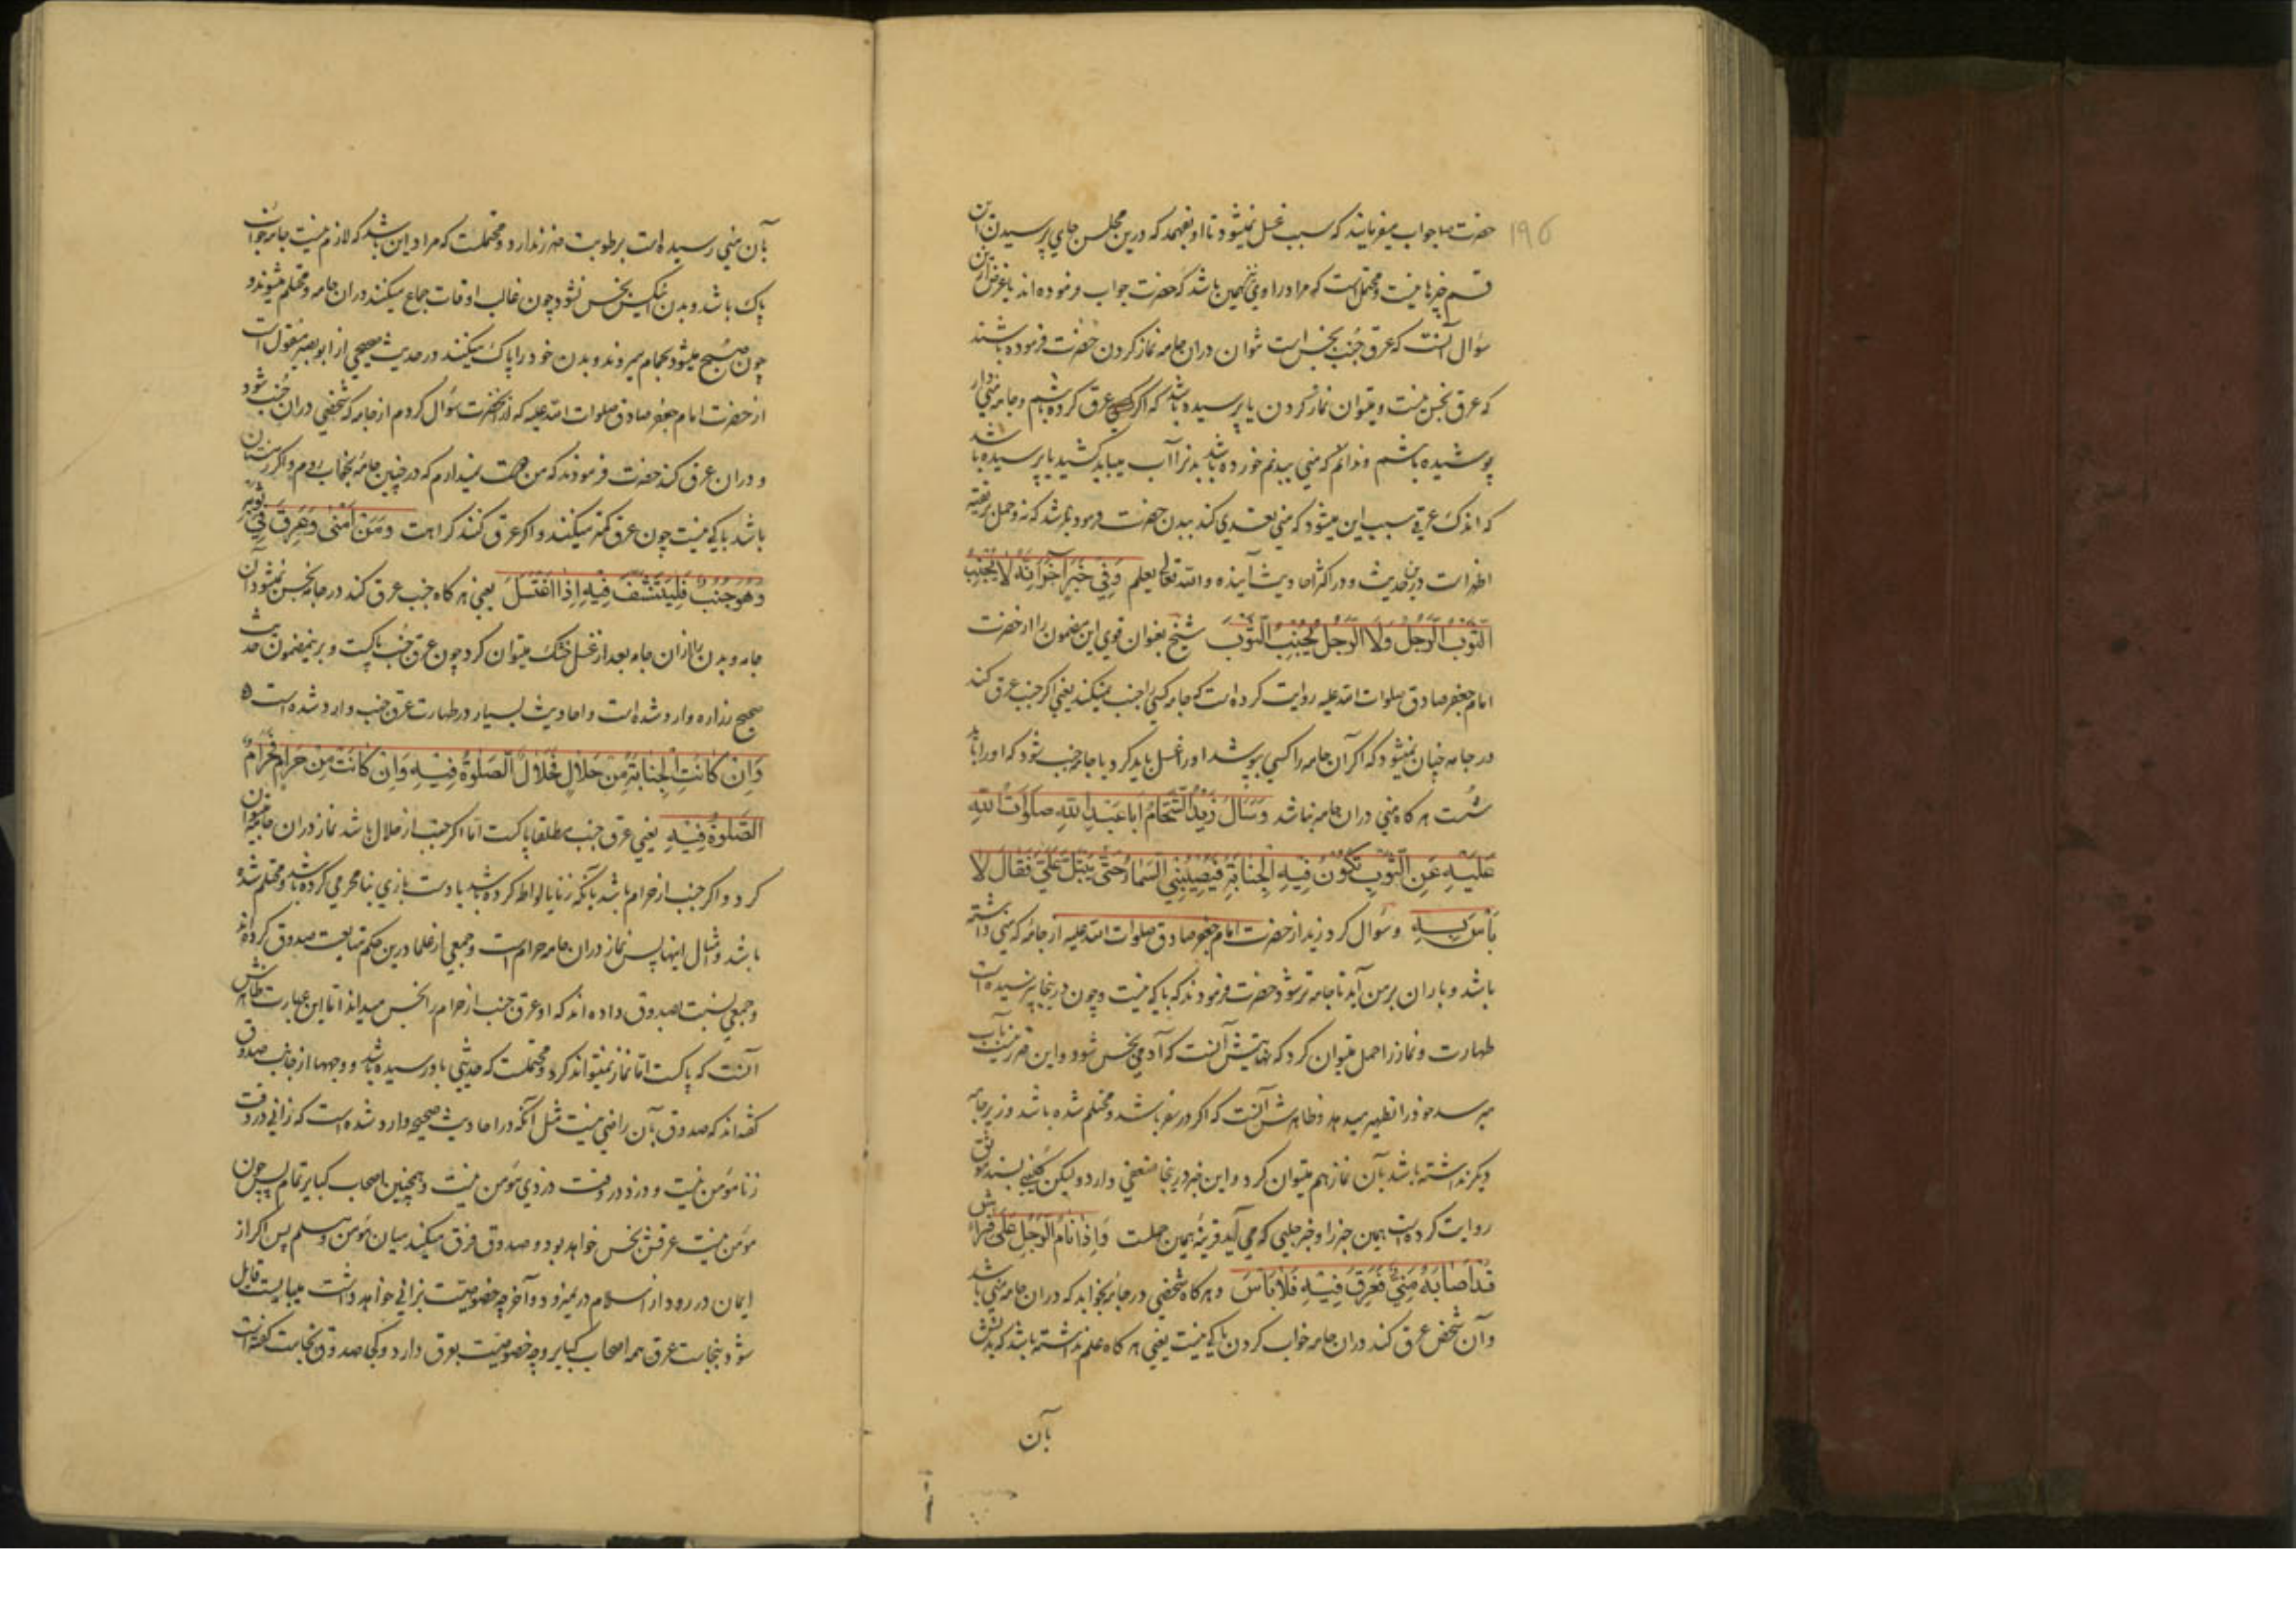 ۱۹۵
حضرت ما جواب میفرمایند که سبب غسل نمیشود تا او بفهمد که درین مجلس جای پرسیدن این
قسم خبرها نیست و محتمل است که مراد راوی نیز همین باشد که حضرت جواب فرموده اند یا غرض ازین
سؤال آنست که عرق جُنب نجس است نتوان دران جامه نماز کردن حضرت فرموده باشند
که عرق نجس نیست و میتوان نماز کردن یا پرسیده باشد که اگر عرق کرده باشم و جامه منی دار
پوشیده باشم و ندانم که منی ببدنم خورده باشد بدنرا آب میباید کشید یا پرسیده باشد
که اندک عرقی سبب این میشود که منی تعدی کند ببدن حضرت فرموده باشد که نه و حمل بر تقیه
اظهر است درین حدیث و در اکثر احادیث آینده و الله تعالی یعلم وَفِي خَبَرٍ آخَرَ أَنَّهُ لَا يُجْنِبُ
الثَّوْبُ الرَّجُلَ وَلَا الرَّجُلُ يُجْنِبُ الثَّوْبَ شیخ بعنوان قوی این مضمون را از حضرت
امام جعفر صادق صلوات الله علیه روایت کرده است که جامه کسی را جنب نمیکند یعنی اگر جنب عرق کند
در جامه چنان نمیشود که اگر آن جامه را کسی بپوشد او را غسل باید کرد یا جامه جنب شود که او را باید
شست هر گاه منی دران جامه نباشد وَسَأَلَ زَيْدٌ الشَّحَّامُ أَبَا عَبْدِ اللهِ صَلَوَاتُ اللهِ
عَلَيْهِ عَنِ الثَّوْبِ تَكُونُ فِيهِ الْجَنَابَةُ فَتُصِيبُنِي السَّمَاءُ حَتَّى يَبْتَلَّ عَلَيَّ فَقَالَ لَا
بَأْسَ بِهِ و سؤال کرد زید از حضرت امام جعفر صادق صلوات الله علیه از جامۀ که منی داشته
باشد و باران بر من آید تا جامه تر شود حضرت فرمودند که باکی نیست و چون درینجا نپرسیده است
طهارت و نماز را حمل میتوان کرد که نهایتش آنست که آدمی نجس شود و این ضرر نیست بآب
میرسد خود را تطهیر میدهد و ظاهرش آنست که اگر در سفر باشد و محتلم شده باشد و زیر جامه
دیگر نداشته باشد بآن نماز هم میتوان کرد و این خبر درینجا ضعفی دارد ولیکن بسند موثق
روایت کرده است همین خبر را و خبر حلبی که می آید قرینۀ همین حملست وَإِذَا نَامَ الرَّجُلُ عَلَى فِرَاشٍ
قَدْ أَصَابَهُ مَنِيٌّ فَعَرِقَ فِيهِ فَلَا بَأْسَ و هر گاه شخصی در جامۀ بخوابد که دران جامه منی باشد
و آن شخص عرق کند دران جامه خواب کردن باکی نیست یعنی هر گاه علم نداشته باشد که بدنش
بآن
بآن منی رسیده است برطوبت ضرر ندارد و محتملست که مراد این باشد که لازم نیست جامه خواب
پاک باشد و بدن نجس نشود چون غالب اوقات جماع میکنند دران جامه و محتلم میشوند و
چون صبح میشود بحمام میروند و بدن خود را پاک میکنند در حدیث صحیحی از ابوبصیر منقول است
از حضرت امام جعفر صادق صلوات الله علیه که از آنحضرت سؤال کردم از جامه که شخصی دران جُنب شود
و دران عرق کند حضرت فرمودند که من دوست نمیدارم که در چنین جامۀ بخواب روم و اگر زمستان
باشد باکی نیست چون عرق کمتر میکنند و اگر عرق کنند کراهت وَمَنْ أَمْنَى وَعَرِقَ فِي ثَوْبِهِ
وَهُوَ جُنُبٌ فَلْيَتَنَشَّفْ فِيهِ إِذَا اغْتَسَلَ یعنی هر گاه جنب عرق کند در جامه نجس نمیشود آن
جامه و بدن را ازان جامه بعد از غسل خشک میتوان کرد چون عرق جُنب پاکست و برینمضمون حدیث
صحیح زراره وارد شده است و احادیث بسیار در طهارت عرق جنب وارد شده است
وَإِنْ كَانَتِ الْجَنَابَةُ مِنْ حَلَالٍ فَحَلَالٌ الصَّلَوةُ فِيهِ وَإِنْ كَانَتْ مِنْ حَرَامٍ فَحَرَامٌ
الصَّلَوةُ فِيهِ یعنی عرق جنب مطلقا پاکست اما اگر جنب از حلال باشد نماز دران جامه میتوان
کرد و اگر جنب از حرام باشد بآنکه زنا یا لواط کرده باشد یا دست بازی بنا محرمی کرده باشد و محتلم شده
باشد و مثال اینها پس نماز دران جامه حرام است و جمعی از علما درین حکم متابعت صدوق کرده اند
و جمعی نسبت بصدوق داده اند که او عرق جنب از حرام را نجس میداند اما این عبارت ظاهرش
آنست که پاکست اما نماز نمیتواند کرد و محتملست که حدیثی باو رسیده باشد و وجهها از جانب صدوق
گفته اند که صدوق بآن راضی نیست مثل آنکه در احادیث صحیحه وارد شده است که زانی در وقت
زنا مؤمن نیست و دزد در وقت دزدی مؤمن نیست و همچنین اصحاب کبایر تمام پس چون
مؤمن نیست عرقش نجس خواهد بود و صدوق فرق میکند میان مؤمن و مسلم پس اگر از
ایمان در رود از اسلام در نمیرود و آخر چه خصوصیت بزانی خواهد داشت میبایست قایل
شود بنجاست عرق همه اصحاب کبایر و چه خصوصیت بعرق دارد و کجا صدوق نجاست گفته است